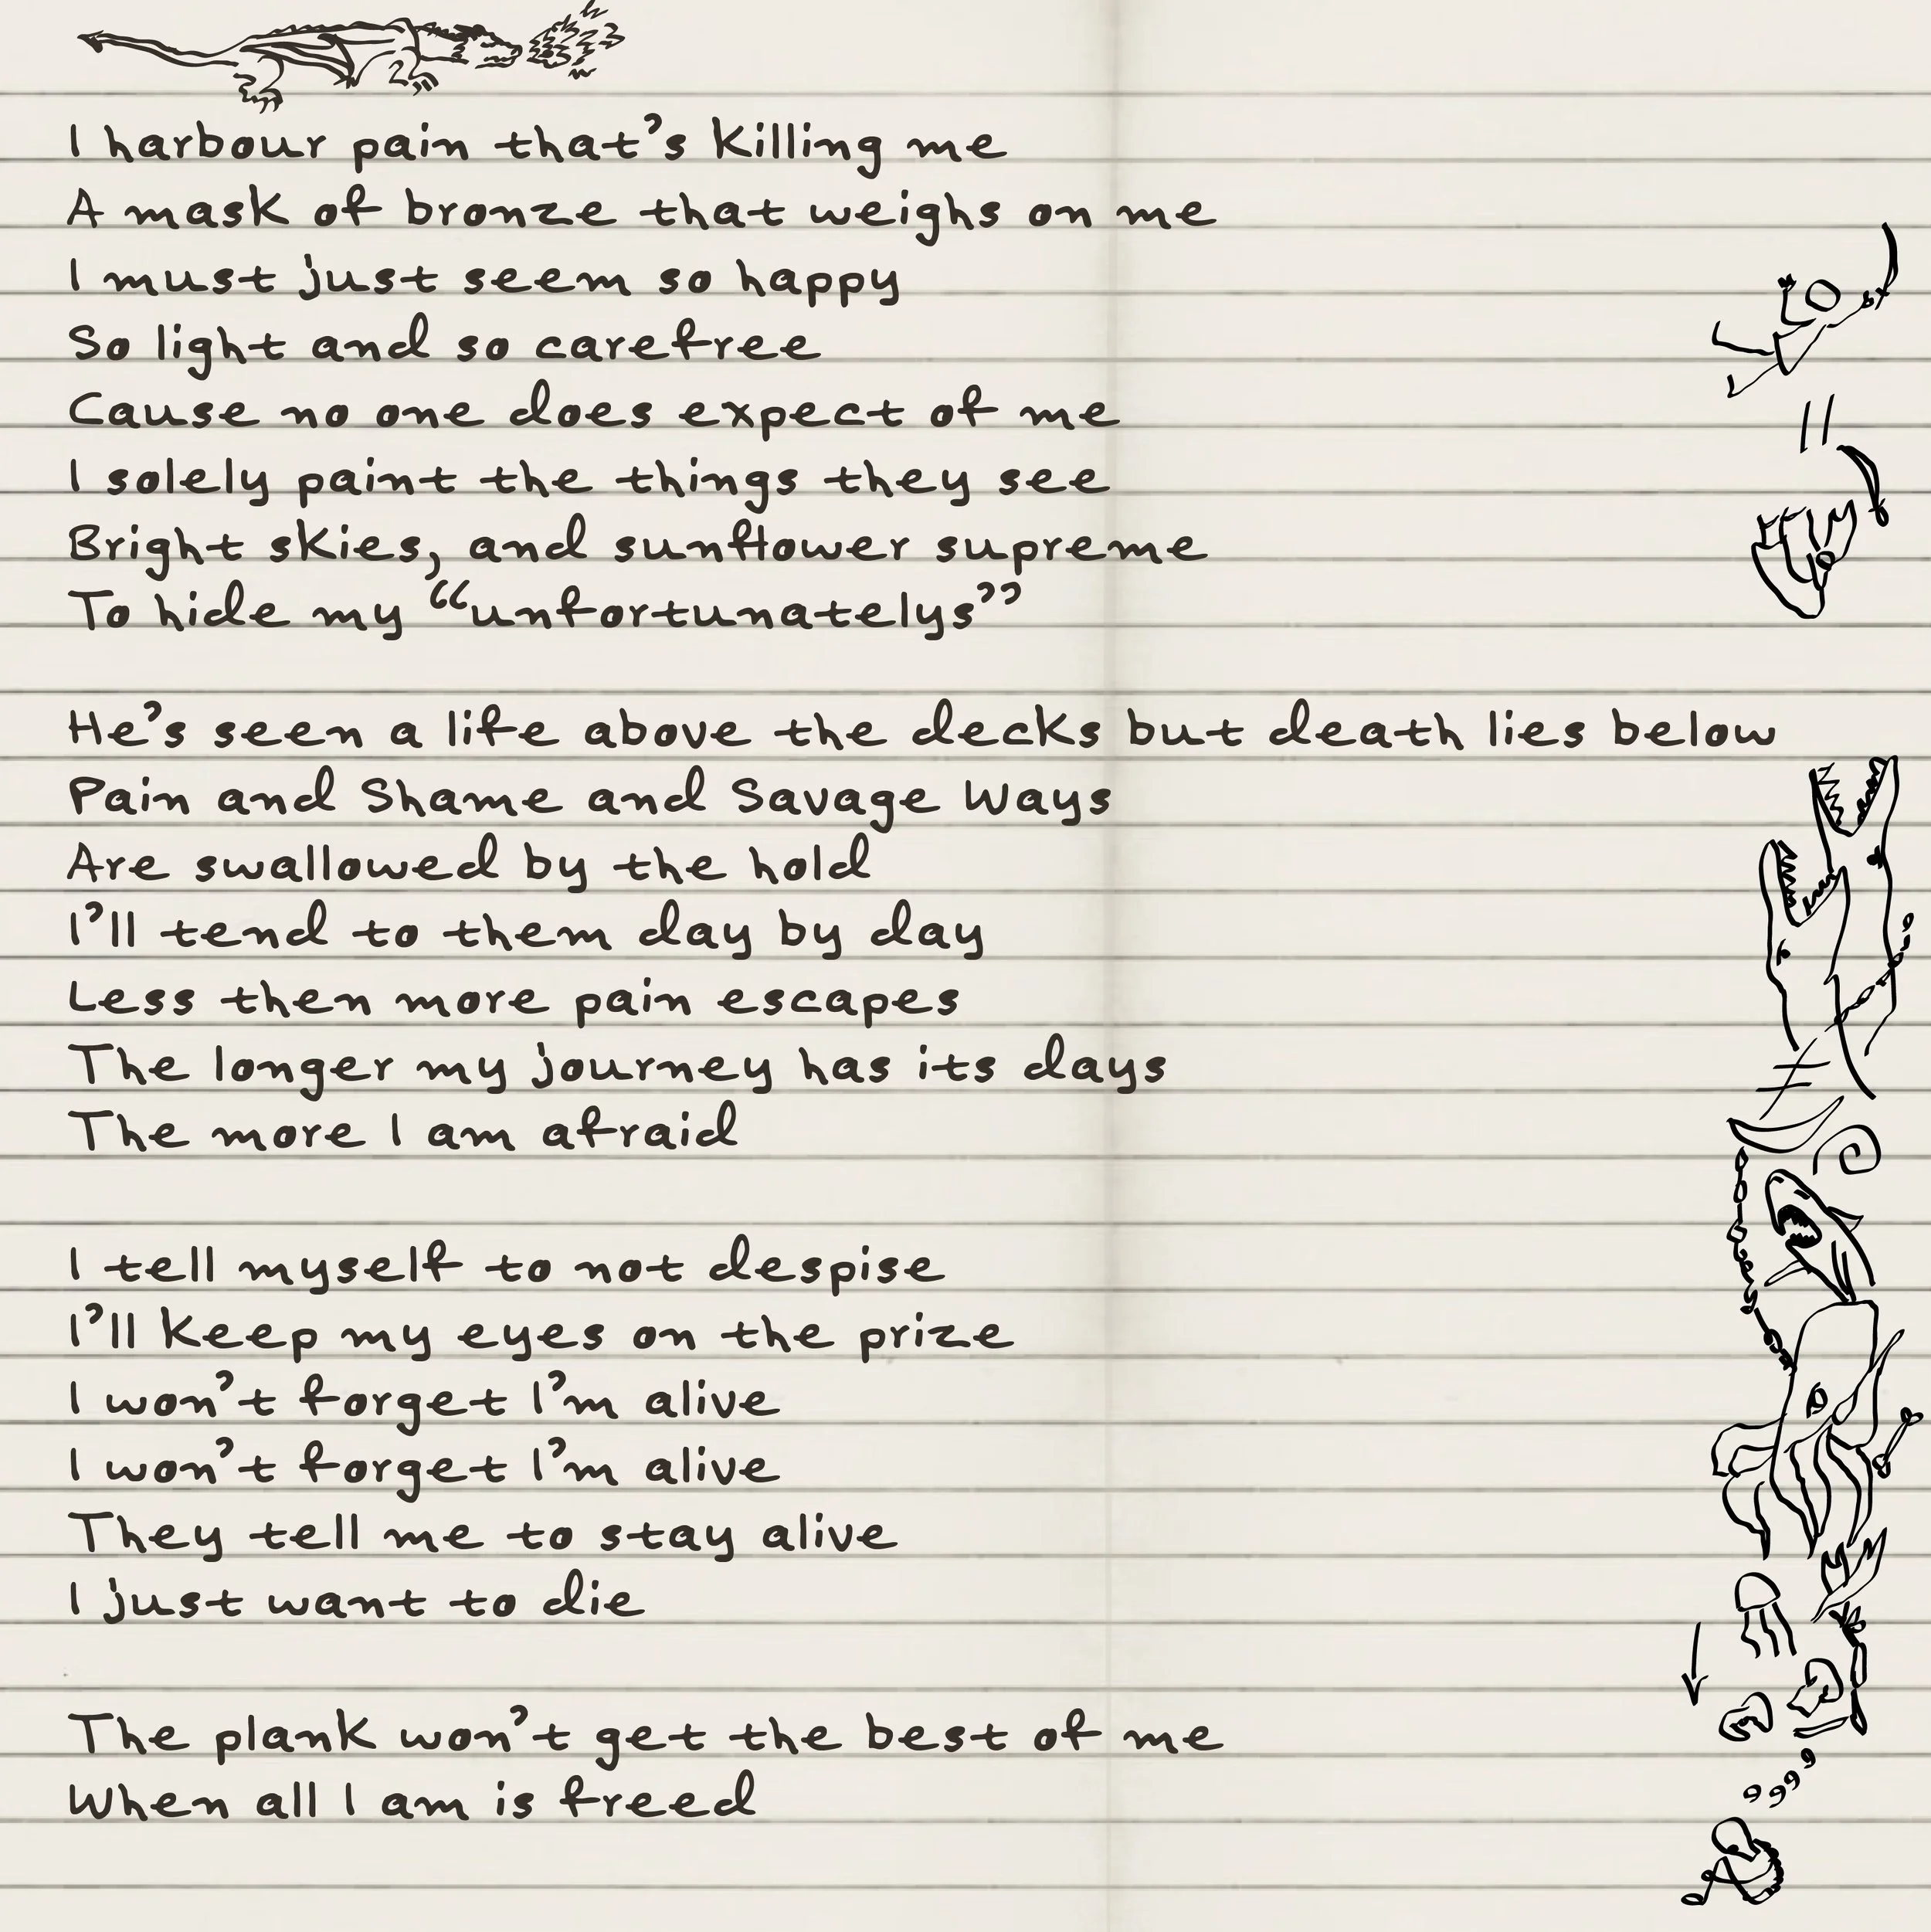 I harbour pain that's killing me
A mask of bronze that weighs on me
I must just seem so happy
So light and so carefree
Cause no one does expect of me
I solely paint the things they see
Bright skies, and sunflower supreme
To hide my “unfortunatelys”
He's seen a life above the decks but death lies below
Pain and Shame and Savage Ways
Are swallowed by the hold
I'll tend to them day by day
Less then more pain escapes
The longer my journey has its days
The more I am afraid
I tell myself to not despise
I'll keep my eyes on the prize
I won't forget I'm alive
I won't forget I'm alive
They tell me to stay alive
I just want to die
The plank won't get the best of me
When all I am is freed